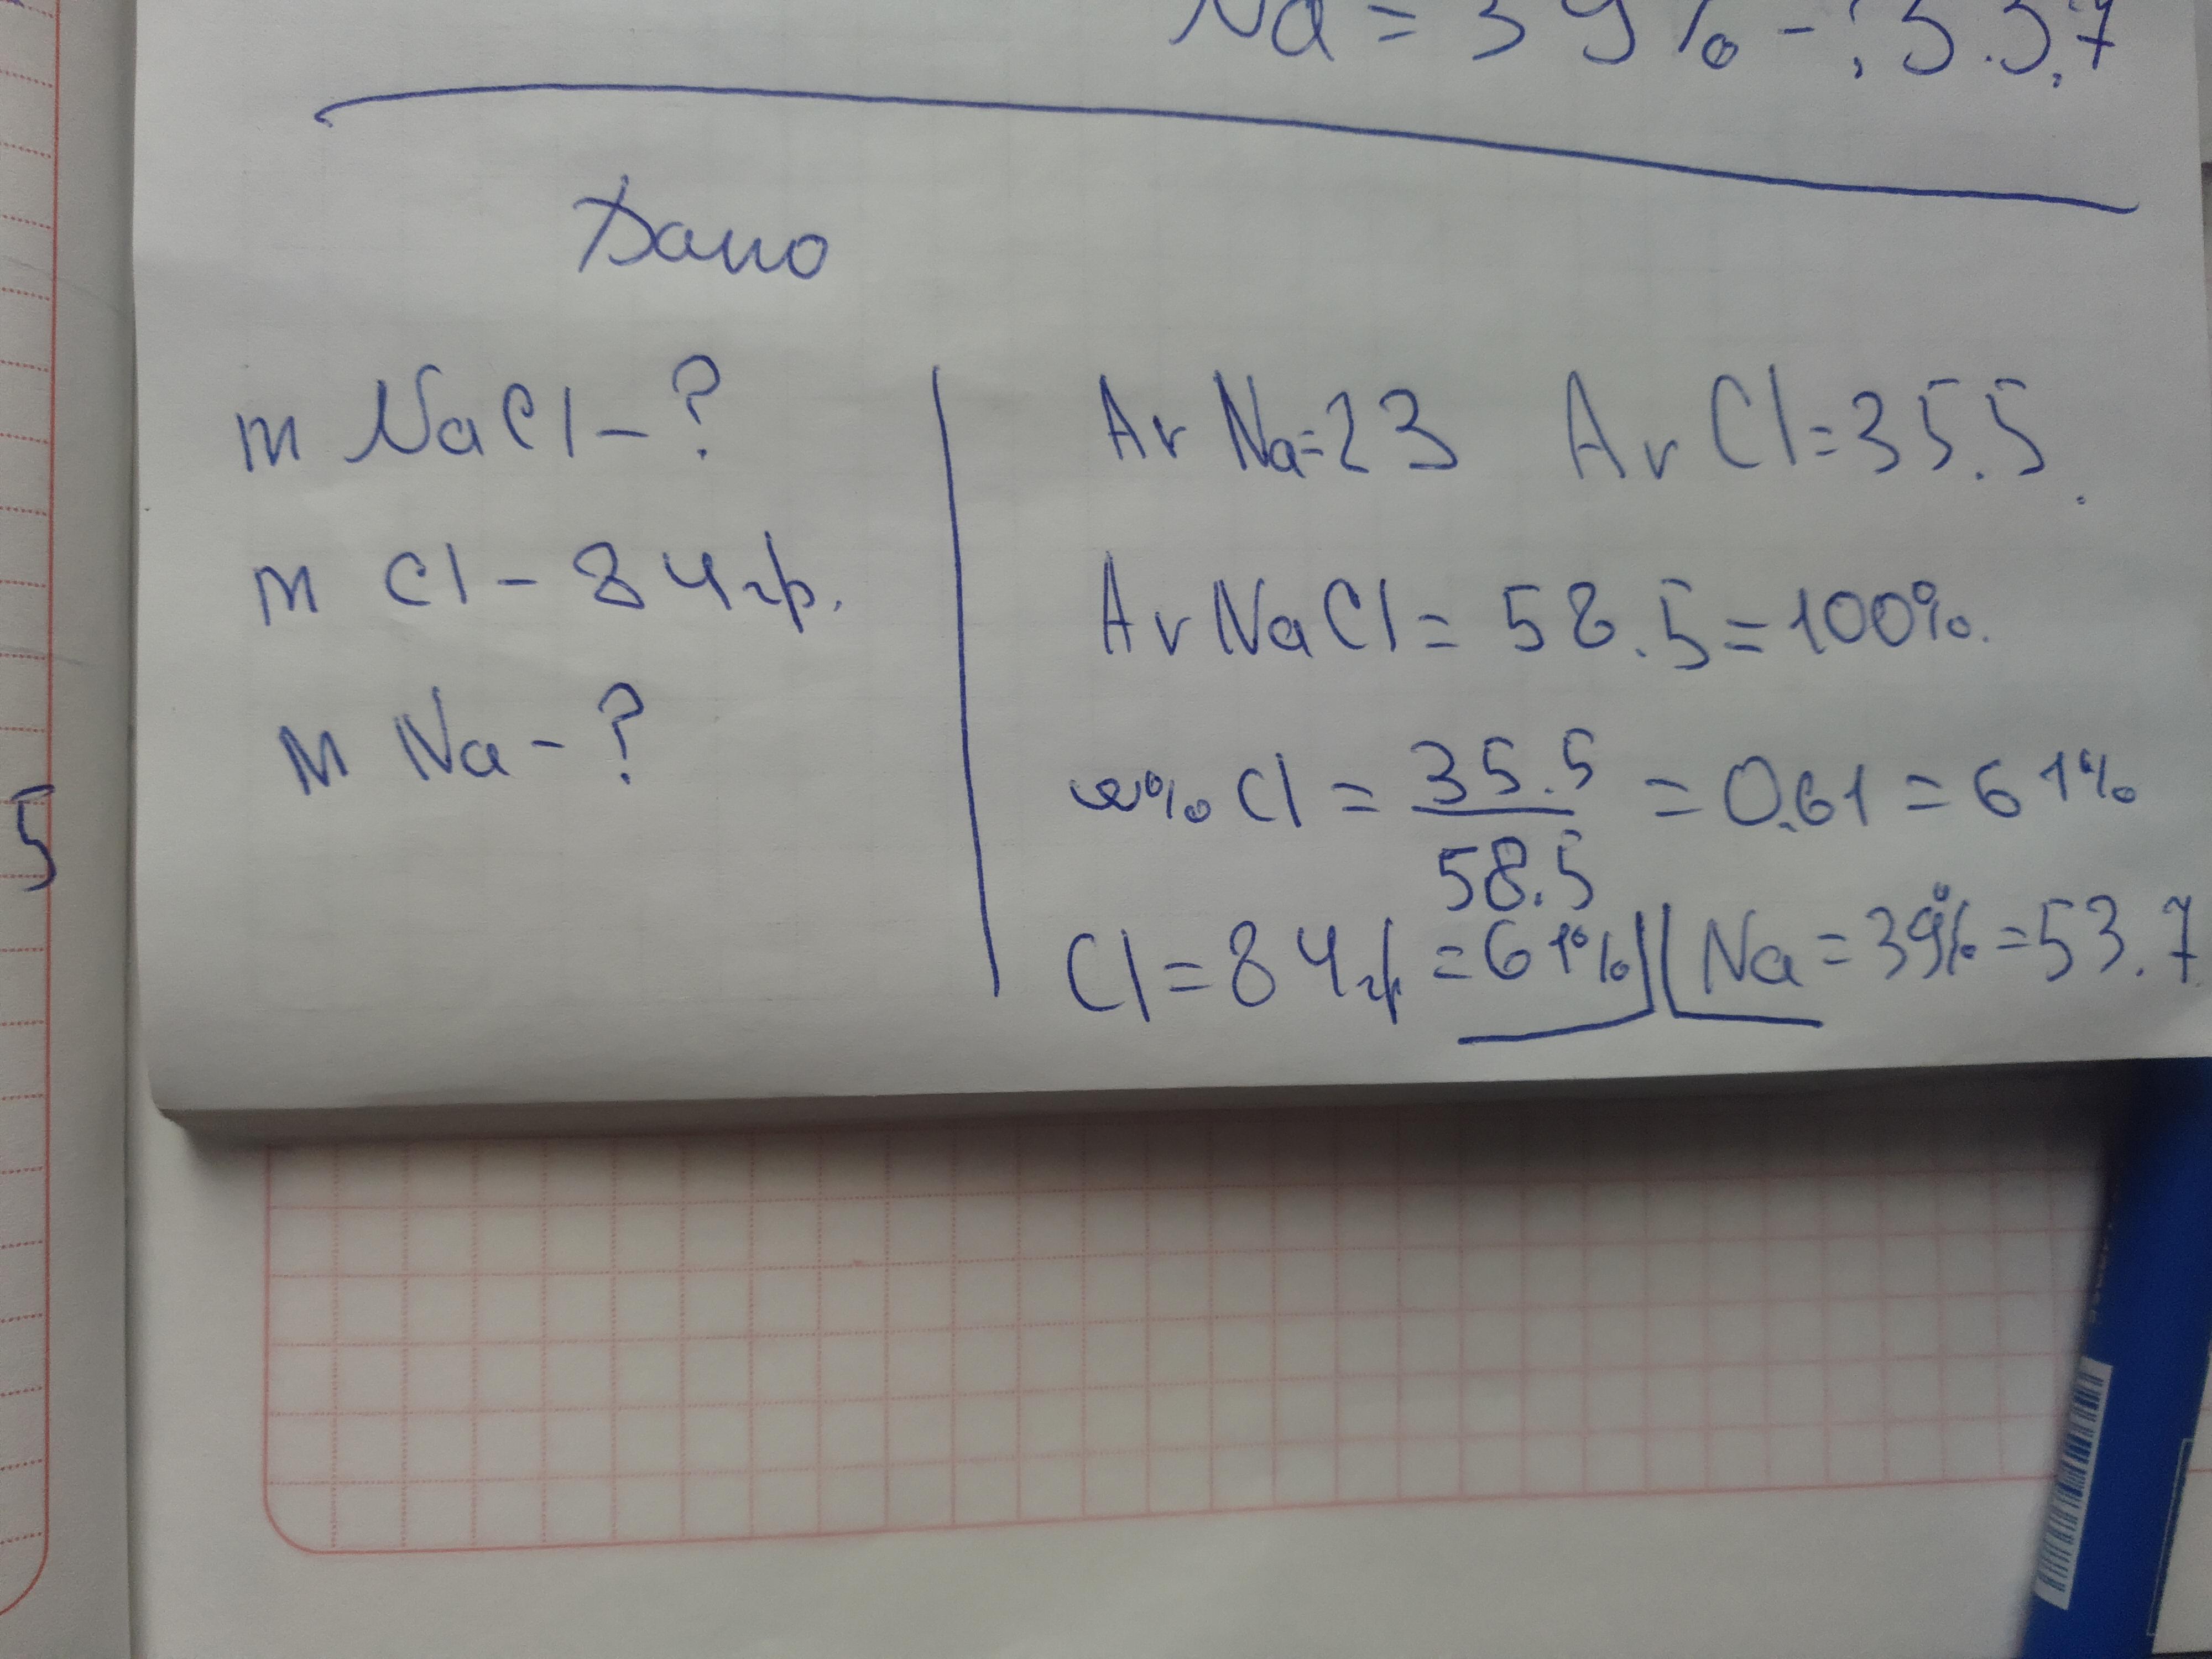 Na = 39% - 53.7
Дано
m NaCl - ?
m Cl - 84гр.
m Na - ?
Ar Na=23 Ar Cl=35.5.
Ar NaCl = 58.5 = 100%.
ω% Cl = 35.5 / 58.5 = 0.61 = 61%
Cl = 84гр = 61% Na = 39% = 53.7
5